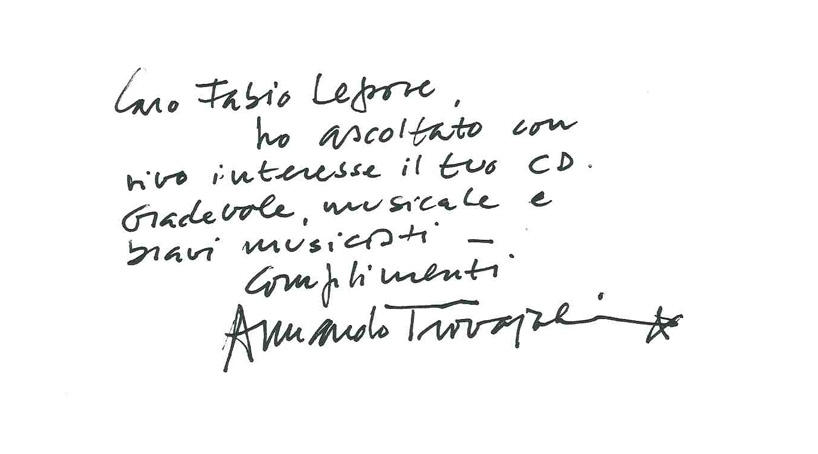 Caro Fabio Lepore,
ho ascoltato con
vivo interesse il tuo CD.
Gradevole, musicale e
bravi musicisti –
Complimenti
Armando Trovajoli